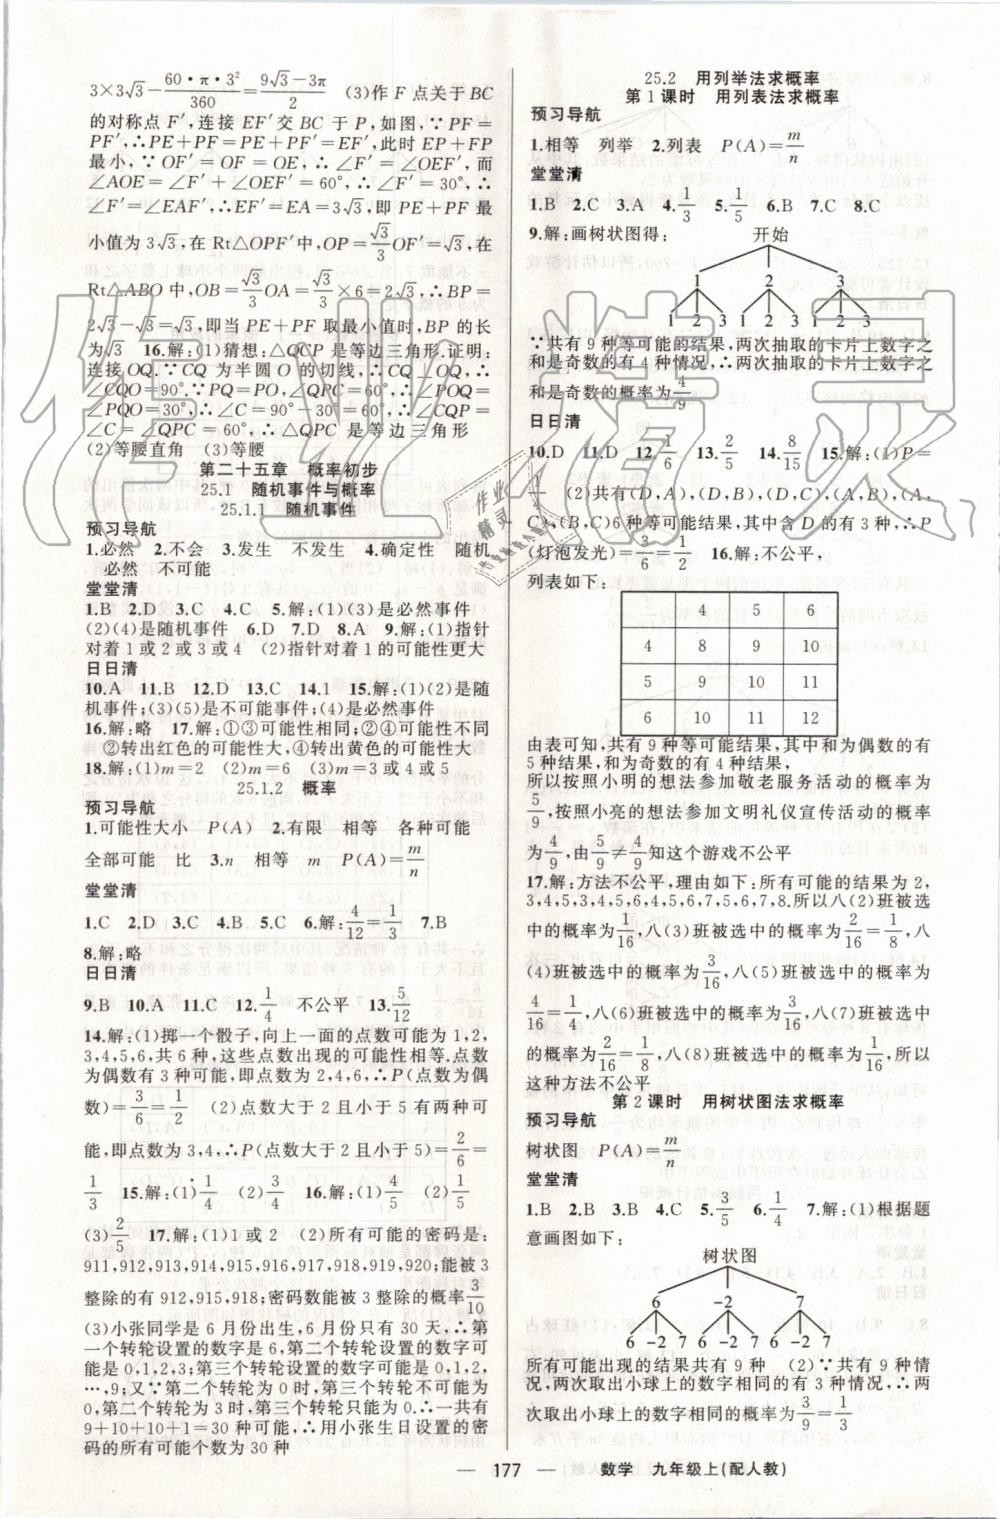 3×3√3−60·π·3²/360=(9√3−3π)/2 (3)作 F 点关于 BC
的对称点 F′,连接 EF′交 BC 于 P,如图,∵PF=
PF′,∴PE+PF=PE+PF′=EF′,此时 EP+FP
最小,∵OF′=OF=OE,∴∠F′=∠OEF′,而
∠AOE=∠F′+∠OEF′=60°,∴∠F′=30°,∴
∠F′=∠EAF′,∴EF′=EA=3√3,即 PE+PF 最
小值为 3√3,在 Rt△OPF′中,OP=√3/3OF′=√3,在
Rt△ABO 中,OB=√3/3OA=√3/3×6=2√3,∴BP=
2√3−√3=√3,即当 PE+PF 取最小值时,BP 的长
为√3 16.解:(1)猜想:△QCP 是等边三角形.证明:
连接 OQ.∵CQ 为半圆 O 的切线,∴CQ⊥OQ,∴
∠CQO=90°.∵PQ=PO,∠QPC=60°,∴∠POQ=
∠PQO=30°,∴∠C=90°−30°=60°,∴∠CQP=
∠C=∠QPC=60°,∴△QPC 是等边三角形
(2)等腰直角 (3)等腰
第二十五章 概率初步
25.1 随机事件与概率
25.1.1 随机事件
预习导航
1.必然 2.不会 3.发生 不发生 4.确定性 随机
必然 不可能
堂堂清
1.B 2.D 3.C 4.C 5.解:(1)(3)是必然事件
(2)(4)是随机事件 6.D 7.D 8.A 9.解:(1)指针
对着 1 或 2 或 3 或 4 (2)指针对着 1 的可能性更大
日日清
10.A 11.B 12.D 13.C 14.1 15.解:(1)(2)是随
机事件;(3)(5)是不可能事件;(4)是必然事件
16.解:略 17.解:①③可能性相同;②④可能性不同
②转出红色的可能性大,④转出黄色的可能性大
18.解:(1)m=2 (2)m=6 (3)m=3 或 4 或 5
25.1.2 概率
预习导航
1.可能性大小 P(A) 2.有限 相等 各种可能
全部可能 比 3.n 相等 m P(A)=m/n
堂堂清
1.C 2.D 3.C 4.B 5.C 6.解:4/12=1/3 7.B
8.解:略
日日清
9.B 10.A 11.C 12.1/4 不公平 13.5/12
14.解:(1)掷一个骰子,向上一面的点数可能为 1,2,
3,4,5,6,共 6 种,这些点数出现的可能性相等.点数
为偶数有 3 种可能,即点数为 2,4,6,∴P(点数为偶
数)=3/6=1/2 (2)点数大于 2 且小于 5 有两种可
能,即点数为 3,4,∴P(点数大于 2 且小于 5)=2/6=
1/3 15.解:(1)1/4 (2)3/4 16.解:(1)4/5 (2)2/5
(3)2/5 17.解:(1)1 或 2 (2)所有可能的密码是:
911,912,913,914,915,916,917,918,919,920;能被 3
整除的有 912,915,918;密码数能被 3 整除的概率3/10
(3)小张同学是 6 月份出生,6 月份只有 30 天,∴第
一个转轮设置的数字是 6,第二个转轮设置的数字可
能是 0,1,2,3;第三个转轮设置的数字可能是 0,1,2,
…,9;又∵第二个转轮为 0时,第三个转轮不可能为
0;第二个转轮为 3 时,第三个只能是 0,∴一共有
9+10+10+1=30 种可能,∴用小张生日设置的密
码的所有可能个数为 30 种
25.2 用列举法求概率
第 1 课时 用列表法求概率
预习导航
1.相等 列举 2.列表 P(A)=m/n
堂堂清
1.B 2.C 3.A 4.1/3 5.1/5 6.B 7.C 8.C
9.解:画树状图得: 开始
1 2 3
1 2 3 1 2 3 1 2 3
∵共有 9 种等可能的结果,两次抽取的卡片上数字之
和是奇数的有 4 种情况,∴两次抽取的卡片上数字之
和是奇数的概率为4/9
日日清
10.D 11.D 12.1/6 13.2/5 14.8/15 15.解:(1)P=
1/4 (2)共有(A,D),(B,D),(C,D),(A,B),(A,
C),(B,C)6 种等可能结果,其中含 D 的有 3 种,∴P
(灯泡发光)=3/6=1/2 16.解:不公平,
列表如下:
4 5 6
4 8 9 10
5 9 10 11
6 10 11 12
由表可知,共有 9 种等可能结果,其中和为偶数的有
5 种结果,和为奇数的有 4 种结果,
所以按照小明的想法参加敬老服务活动的概率为
5/9,按照小亮的想法参加文明礼仪宣传活动的概率
为4/9,由5/9≠4/9知这个游戏不公平
17.解:方法不公平,理由如下:所有可能的结果为 2,
3,4,5,3,4,5,6,4,5,6,7,5,6,7,8.所以八(2)班被选
中的概率为1/16,八(3)班被选中的概率为2/16=1/8,八
(4)班被选中的概率为3/16,八(5)班被选中的概率为
4/16=1/4,八(6)班被选中的概率为3/16,八(7)班被选中
的概率为2/16=1/8,八(8)班被选中的概率为1/16,所以
这种方法不公平
第 2 课时 用树状图法求概率
预习导航
树状图 P(A)=m/n
堂堂清
1.B 2.B 3.B 4.C 5.4/9 6.1/4 7.解:(1)根据题
意画图如下:
树状图
6 −2 7
6 −2 7 6 −2 7 6 −2 7
所有可能出现的结果共有 9 种 (2)∵共有 9 种情
况,两次取出小球上的数字相同的有 3 种情况,∴两
次取出小球上的数字相同的概率为3/9=1/3
— 177 — 数学 九年级上(配人教)